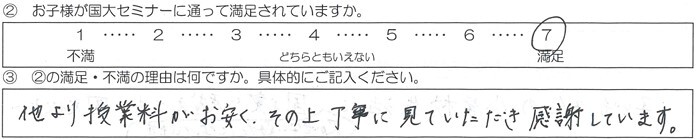 ② お子様が国大セミナーに通って満足されていますか。
1 ····· 2 ····· 3 ····· 4 ····· 5 ····· 6 ····· 7
不満 どちらともいえない 満足
③ ②の満足・不満の理由は何ですか。具体的にご記入ください。
他より授業料がお安く、その上丁寧に見ていただき感謝しています。